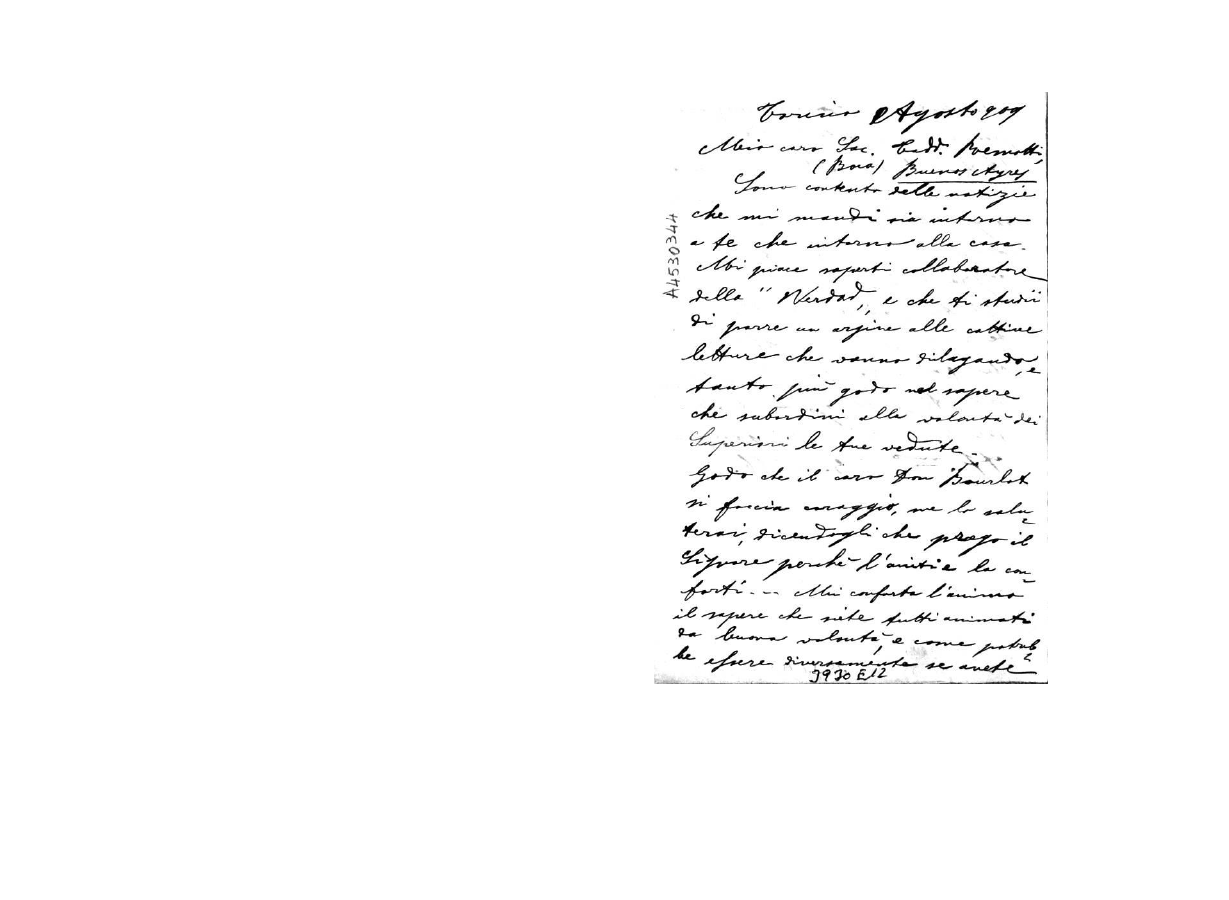 Torino 2 Agosto 909
Mio caro Sac. Tadd.
(Boca) Buenos Ayres
Sono contento delle notizie
che mi mandi sia intorno
a te che intorno alla casa.
Mi piace saperti collaboratore
della "Verdad„ e che ti studii
di porre un argine alle cattive
letture che vanno dilagando, e
tanto più godo nel sapere
che subordini alla volontà dei
Superiori le tue vedute.
Godo che il caro Don Bourlot
si faccia coraggio, me lo salu-
terai, dicendogli che prego il
Signore perchè l'aiuti e lo con-
forti... Mi conforta l'animo
il sapere che siete tutti animati
da buona volontà, e come potreb-
be essere diversamente se avete
A4530344
3930 E12